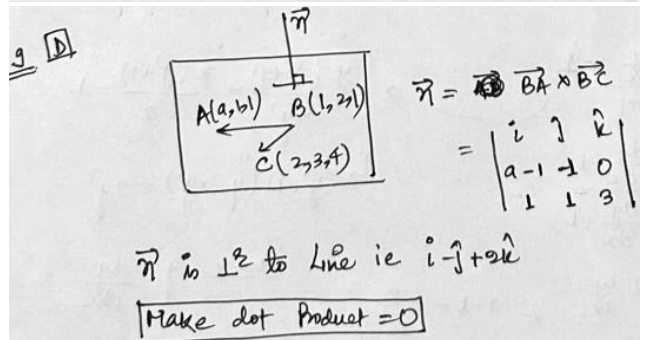 9 D
n⃗
A(a,b,1) B(1,2,1)
C(2,3,4)
n⃗ = BA⃗ × BC⃗
= | i j k̂ |
| a-1 -1 0 |
| 1 1 3 |
n⃗ is ⊥r to Line ie i-ĵ+2k̂
Make dot Product = 0